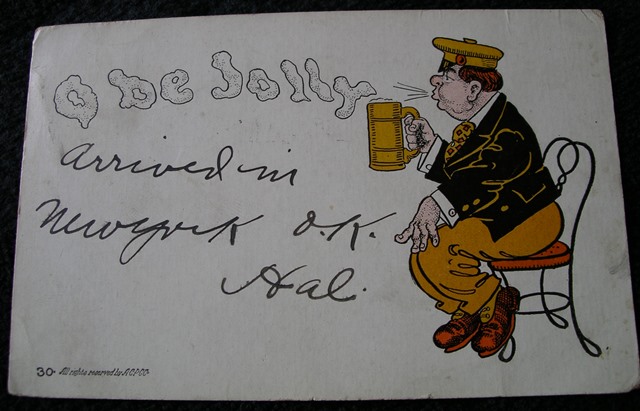 O be Jolly
Arrived in
New York O.K.
Hal.
30. All rights reserved by A.C.P.CO.